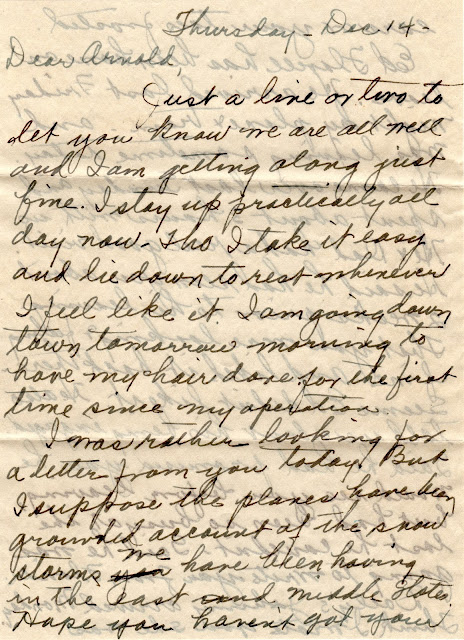 Thursday - Dec 14 -
Dear Arnold,
Just a line or two to
let you know we are all well
and I am getting along just
fine. I stay up practically all
day now - Tho I take it easy
and lie down to rest whenever
I feel like it. I am going down
town tomorrow morning to
have my hair done for the first
time since my operation.
I was rather looking for
a letter from you today. But
I suppose the planes have been
grounded account of the snow
storms you we have been having
in the east and middle states.
Hope you haven't got your